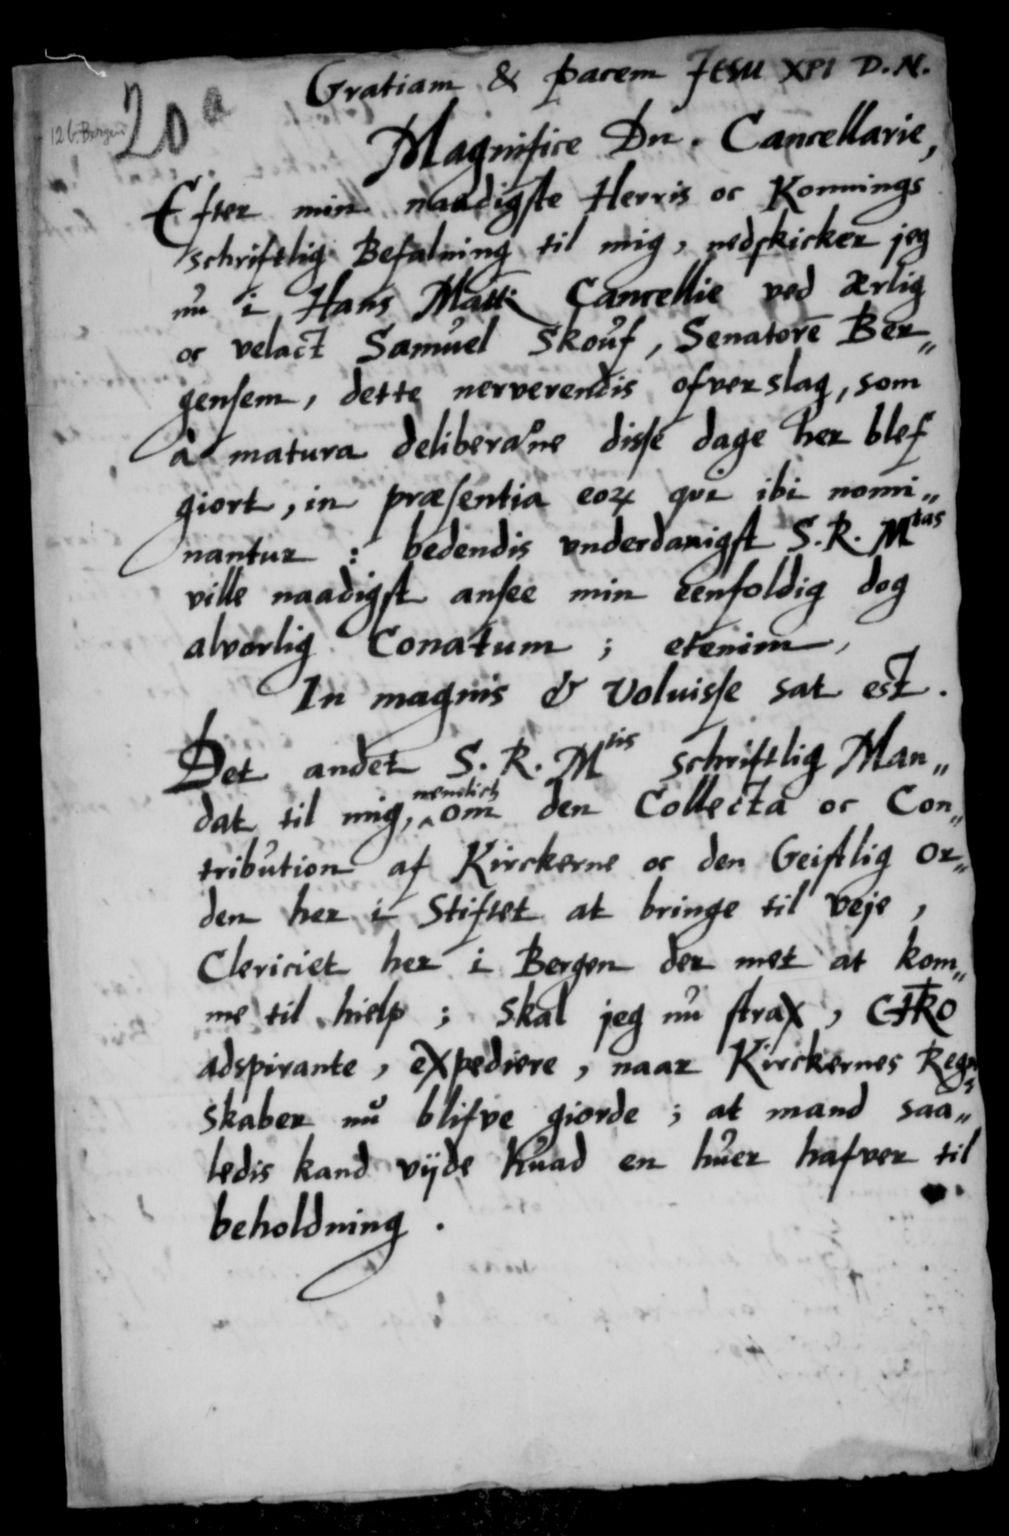 Gratiam & pacem Jesu XPI D.N.
20 a
126. Bergen
Magnifice Dn. Cancellarie,
Efter min naadigste Herris oc Konnings
schriftlig Befalning til mig, nedskicker jeg
nu i Hans Matt: Cancellie ved ærlig
oc velact Samuel Skouf, Senatorē Ber„
gensem, dette nerverendis ofverslag, som
à matura deliberaōne disse dage her blef
giort, in præsentia eoꝝ qui ibi nomi„
nantur : bedendis vnderdanigst S. R. Mtas
ville naadigst ansee min eenfoldig dog
alvorlig Conatum ; etenim,
In magnis & Voluisse sat est.
Det andet S. R. Mtis schriftlig Man„
dat til mig, nemelich om den Collecta oc Con„
tribution af Kirckerne oc den Geistlig Or„
den her i Stiftet at bringe til veje,
Clericiet her i Bergen der met at kom„
me til hielp ; skal jeg nu strax, CHRO
adspirante, expediere, naar Kirckernes Regn„
skaber nu blifve giorde ; at mand saa„
ledis kand vijde huad en huer hafver til
beholdning.